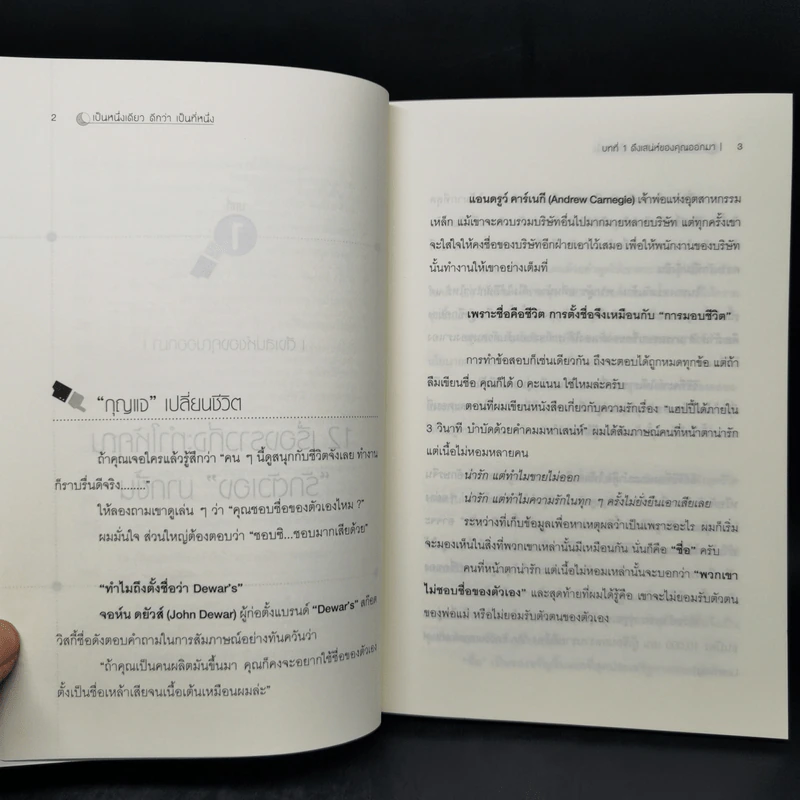 2
เป็นหนึ่งเดียว ดีกว่า เป็นที่หนึ่ง
“กุญแจ” เปลี่ยนชีวิต
ถ้าคุณเจอใครแล้วรู้สึกว่า “คน ๆ นี้ดูสนุกกับชีวิตจังเลย ทำงาน
ก็ราบรื่นดีจริง........”
ให้ลองถามเขาดูเล่น ๆ ว่า “คุณชอบชื่อของตัวเองไหม ?”
ผมมั่นใจ ส่วนใหญ่ต้องตอบว่า “ชอบซิ...ชอบมากเสียด้วย”
“ทำไมถึงตั้งชื่อว่า Dewar’s”
จอห์น ดยัวส์ (John Dewar) ผู้ก่อตั้งแบรนด์ “Dewar’s” สก๊อต
วิสกี้ชื่อดังตอบคำถามในการสัมภาษณ์อย่างทันควันว่า
“ถ้าคุณเป็นคนผลิตมันขึ้นมา คุณก็คงจะอยากใช้ชื่อของตัวเอง
ตั้งเป็นชื่อเหล้าเสียจนเนื้อเต้นเหมือนผมล่ะ”
บทที่ 1 ดึงเสน่ห์ของคุณออกมา | 3
แอนดรูว์ คาร์เนกี (Andrew Carnegie) เจ้าพ่อแห่งอุตสาหกรรม
เหล็ก แม้เขาจะควบรวมบริษัทอื่นไปมากมายหลายบริษัท แต่ทุกครั้งเขา
จะใส่ใจให้คงชื่อของบริษัทอีกฝ่ายเอาไว้เสมอ เพื่อให้พนักงานของบริษัท
นั้นทำงานให้เขาอย่างเต็มที่
เพราะชื่อคือชีวิต การตั้งชื่อจึงเหมือนกับ “การมอบชีวิต”
การทำข้อสอบก็เช่นเดียวกัน ถึงจะตอบได้ถูกหมดทุกข้อ แต่ถ้า
ลืมเขียนชื่อ คุณก็ได้ 0 คะแนน ใช่ไหมล่ะครับ
ตอนที่ผมเขียนหนังสือเกี่ยวกับความรักเรื่อง “แฮปปี้ได้ภายใน
3 วินาที บำบัดด้วยคำคมมหาเสน่ห์” ผมได้สัมภาษณ์คนที่หน้าตาน่ารัก
แต่เนื้อไม่หอมหลายคน
น่ารัก แต่ทำไมขายไม่ออก
น่ารัก แต่ทำไมความรักในทุก ๆ ครั้งไม่ยั่งยืนเอาเสียเลย
ระหว่างที่เก็บข้อมูลเพื่อหาเหตุผลว่าเป็นเพราะอะไร ผมก็เริ่ม
จะมองเห็นในสิ่งที่พวกเขาเหล่านั้นมีเหมือนกัน นั่นก็คือ “ชื่อ” ครับ
คนที่หน้าตาน่ารัก แต่เนื้อไม่หอมเหล่านั้นจะบอกว่า “พวกเขา
ไม่ชอบชื่อของตัวเอง” และสุดท้ายที่ผมได้รู้คือ เขาจะไม่ยอมรับตัวตน
ของพ่อแม่ หรือไม่ยอมรับตัวตนของตัวเอง